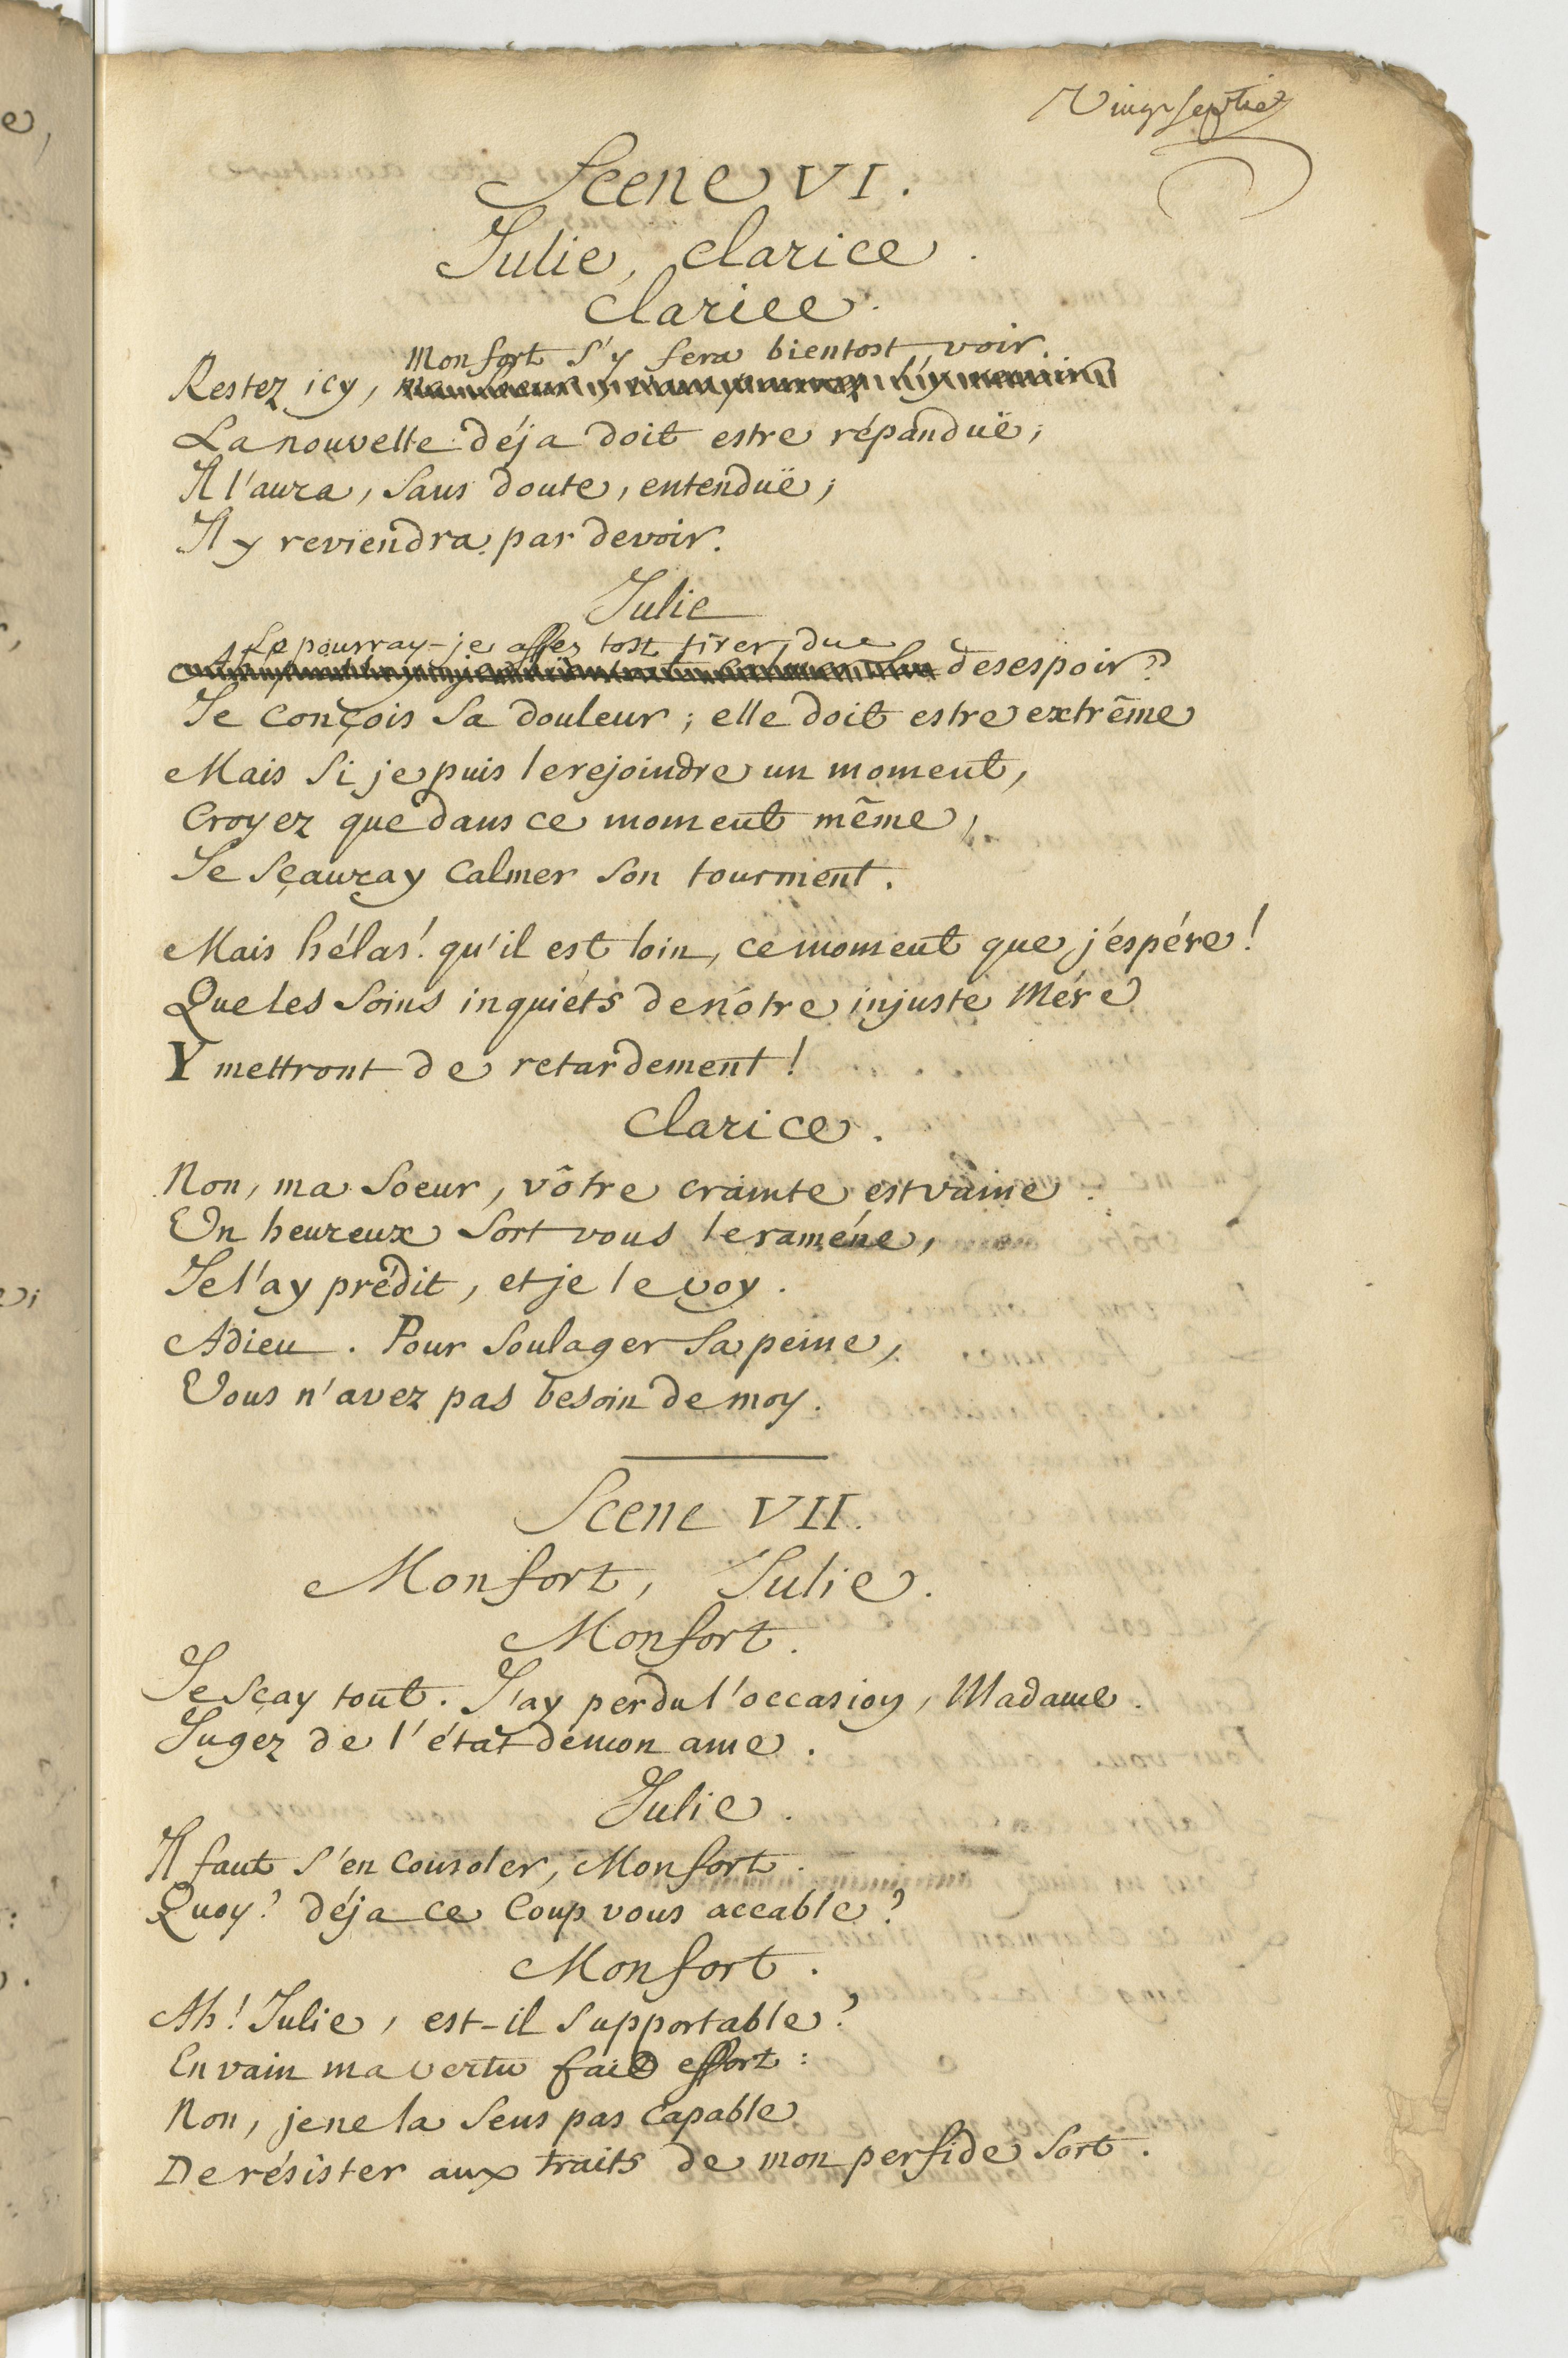 Vingt septie
Scene VI.
Julie, Clarice.
Clarice.
Monfort s'y fera bientost voir.
Restez icy,
La nouvelle déja doit estre répanduë;
Il l'aura, sans doute, entenduë;
Il y reviendra par devoir.
Julie
Le pourray-je assez tost tirer du
desespoir?
Je conçois sa douleur; elle doit estre extrême
Mais si je puis le rejoindre un moment,
Croyez que dans ce moment même,
Je sçauray calmer son tourment.
Mais hélas! qu'il est loin, ce moment que j'espére!
Que les soins inquiéts de nôtre injuste Mére
Y mettront de retardement!
Clarice.
Non, ma soeur, vôtre crainte est vaine.
Un heureux sort vous le raméne,
Je l'ay prédit, et je le voy.
Adieu. Pour soulager sa peine,
Vous n'avez pas besoin de moy.
Scene VII.
Monfort, Julie.
Monfort.
Je sçay tout. J'ay perdu l'occasion, Madame.
Jugez de l'état de mon ame.
Julie.
Il faut s'en consoler, Monfort.
Quoy? déja ce coup vous accable?
Monfort.
Ah! Julie, est-il supportable?
En vain ma vertu fait effort:
Non, je ne la sens pas capable
De résister aux traits de mon perfide sort.